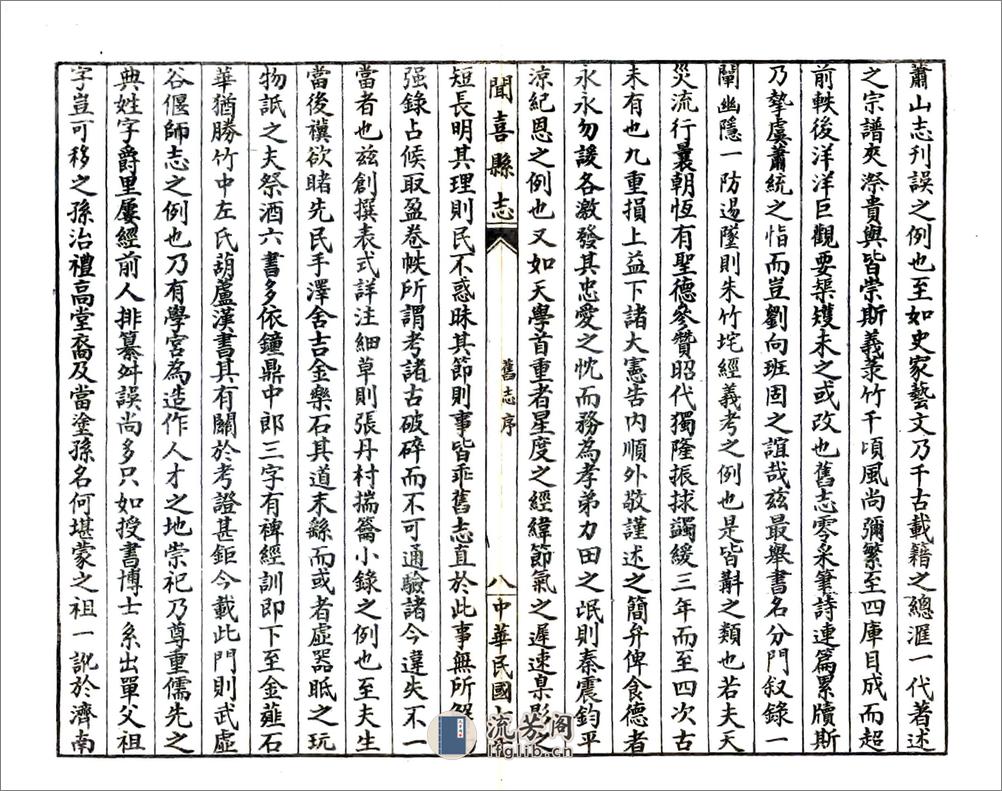 蕭山志刊誤之例也至如史家藝文乃千古載籍之總滙一代著述
之宗譜夾漈貴與皆崇斯義菉竹千頃風尚彌繁至四庫目成而超
前軼後洋洋巨觀要榘矱未之或改也舊志零采筆詩連篇累牘斯
乃摯虞蕭統之恉而豈劉向班固之誼哉兹最舉書名分門叙錄一
闡幽隱一防逷墜則朱竹垞經義考之例也是皆斠之類也若夫天
災流行曩朝恆有聖德參贊昭代獨隆振捄蠲緩三年而至四次古
未有也九重損上益下諸大憲告內順外敬謹述之簡弁俾食德者
永永勿諼各激發其忠愛之忱而務為孝弟力田之氓則秦震鈞平
涼紀恩之例也又如天學首重者星度之經緯節氣之遲速臬影之
短長明其理則民不惑昧其節則事皆乖舊志直於此事無所解
强錄占候取盈卷帙所謂考諸古破碎而不可通驗諸今違失不一
當者也兹創撰表式詳注細草則張丹村揣籥小錄之例也至夫生
當後禩欲睹先民手澤舍吉金樂石其道末繇而或者虛器眡之玩
物詆之夫祭酒六書多依鐘鼎中郎三字有裨經訓即下至金薤石
華猶勝竹中左氏葫蘆漢書其有關於考證甚鉅今載此門則武虛
谷偃師志之例也乃有學宮為造作人才之地崇祀乃尊重儒先之
典姓字爵里屢經前人排纂舛誤尚多只如授書博士系出單父祖
字豈可移之孫治禮高堂裔及當塗孫名何堪蒙之祖一訛於濟南
聞喜縣志
舊志序
八
中華民國
流芳阁
lfglib.cn